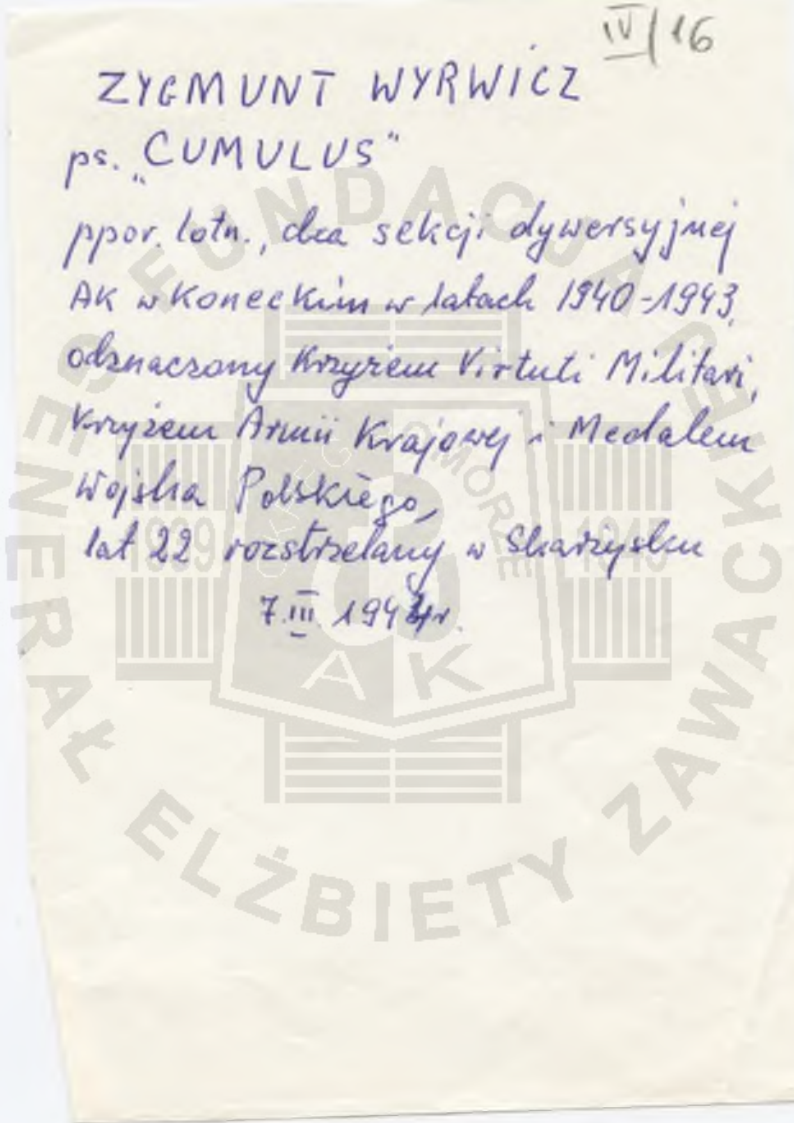 IV/16
ZYGMUNT WYRWICZ
ps. „CUMULUS"
ppor. lotn., dca sekcji dywersyjnej
AK w Koneckim w latach 1940-1943,
odznaczony Krzyżem Virtuti Militari,
Krzyżem Armii Krajowej i Medalem
Wojska Polskiego,
lat 22 rozstrzelany w Skarżysku
7.III.1944r.
FUNDACJA GENERAŁ ELŻBIETY ZAWACKIEJ
1939 1945
AK